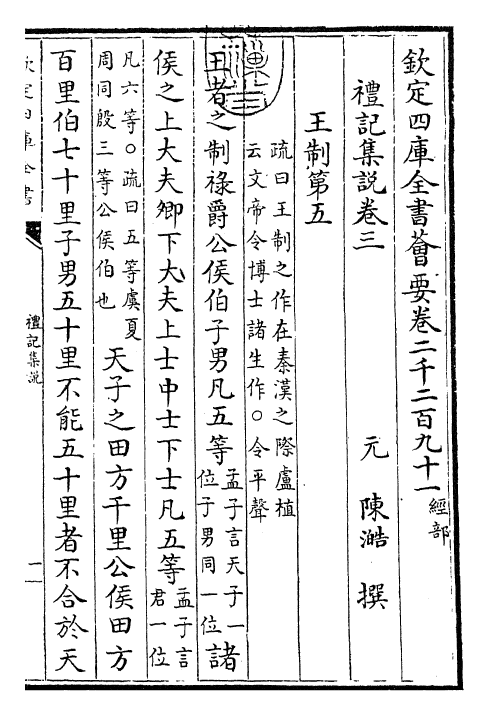 欽定四庫全書薈要卷二千二百九十一 經部
禮記集說卷三 元 陳澔 撰
王制第五
疏曰王制之作在秦漢之際盧植
云文帝令博士諸生作○令平聲
王者之制祿爵公侯伯子男凡五等
孟子言天子一
位子男同一位
諸
侯之上大夫卿下大夫上士中士下士凡五等
孟子言
君一位
凡六等○疏曰五等虞夏
周同殷三等公侯伯也
天子之田方千里公侯田方
百里伯七十里子男五十里不能五十里者不合於天
欽定四庫全書
禮記集說
一